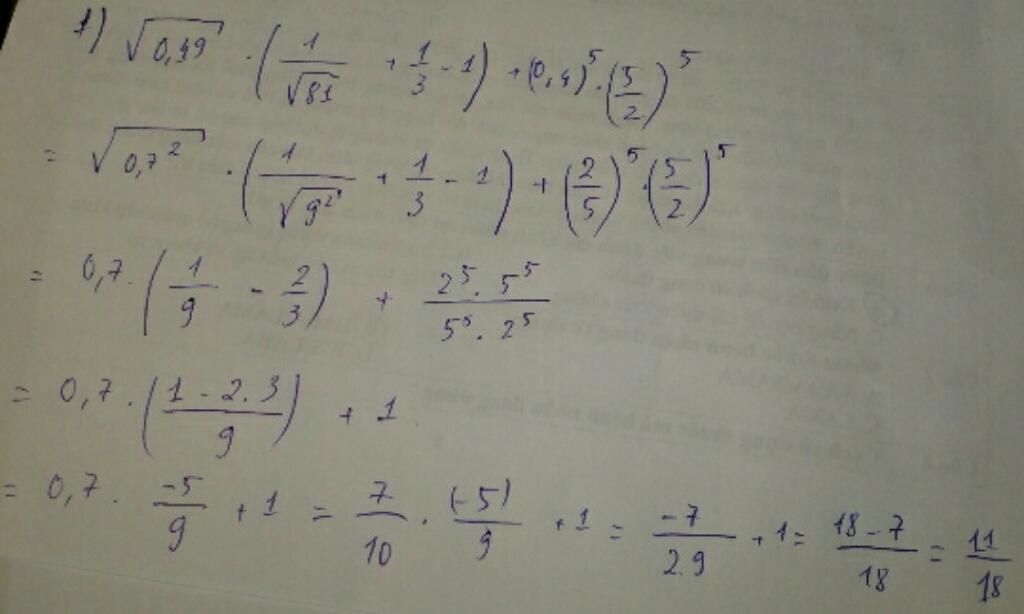 1) √0,49 · (1/√81 + 1/3 - 1) + (0,4)^5 · (5/2)^5
= √0,7² · (1/√9² + 1/3 - 1) + (2/5)^5 · (5/2)^5
= 0,7 · (1/9 - 2/3) + 2^5 . 5^5 / 5^5 . 2^5
= 0,7 · (1 - 2.3 / 9) + 1
= 0,7 · -5/9 + 1 = 7/10 · (-5)/9 + 1 = -7/2.9 + 1 = 18 - 7/18 = 11/18